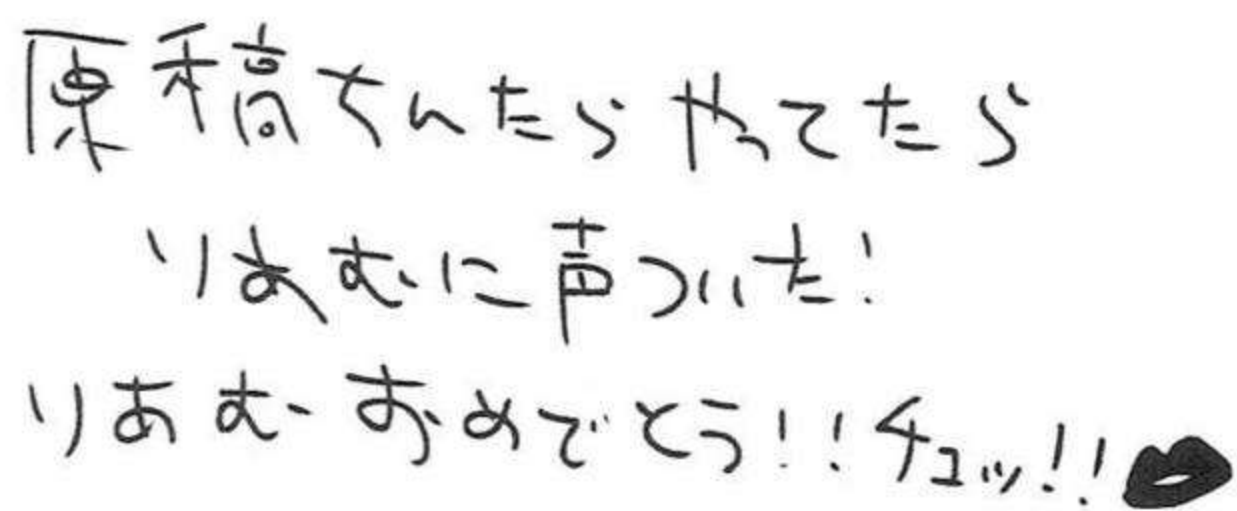 原稿ちんたらやってたら
りあむに声ついた!
りあむーおめでとう!!チュッ!!